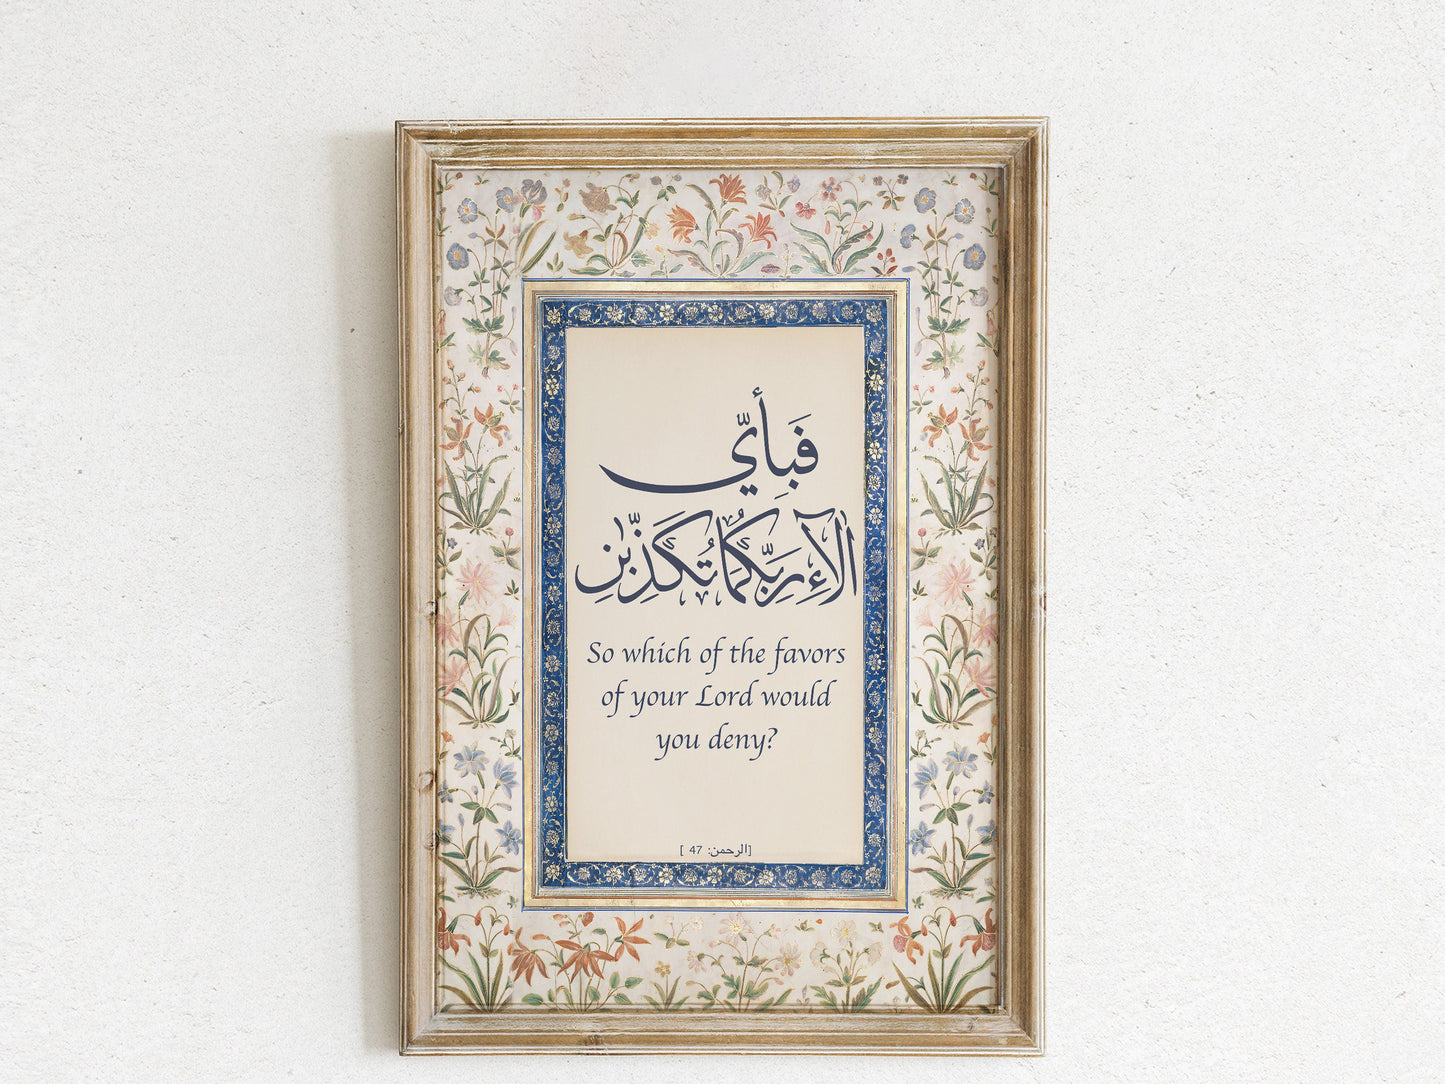 فَبِأَيِّ
ءَالَآءِ رَبِّكُمَا تُكَذِّبَانِ
So which of the favors
of your Lord would
you deny?
[الرحمن: 47 ]